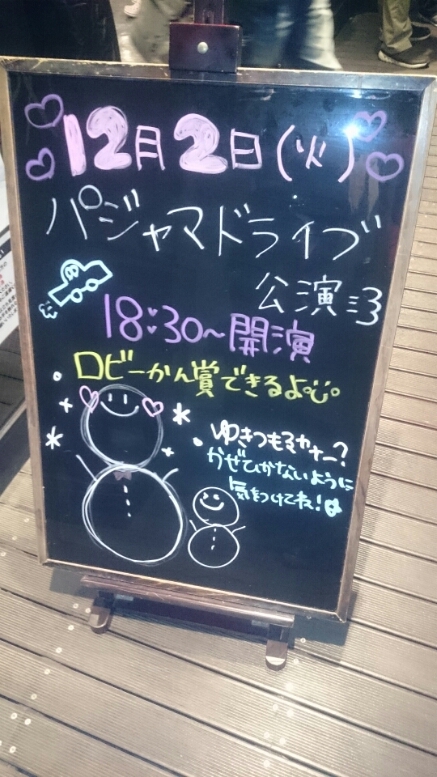 12月2日(火)
パジャマドライブ
公演
18:30~開演
ロビーかん賞できるよ
ゆきつもるかなー?
かぜひかないように
気をつけてね!